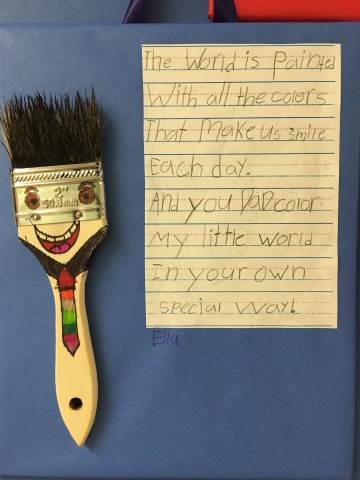 The World is Painted
With all the colors
That Make us smile
Each day.
And you DAD color
My little world
In your own
special way!
Ella
2"
50.8mm